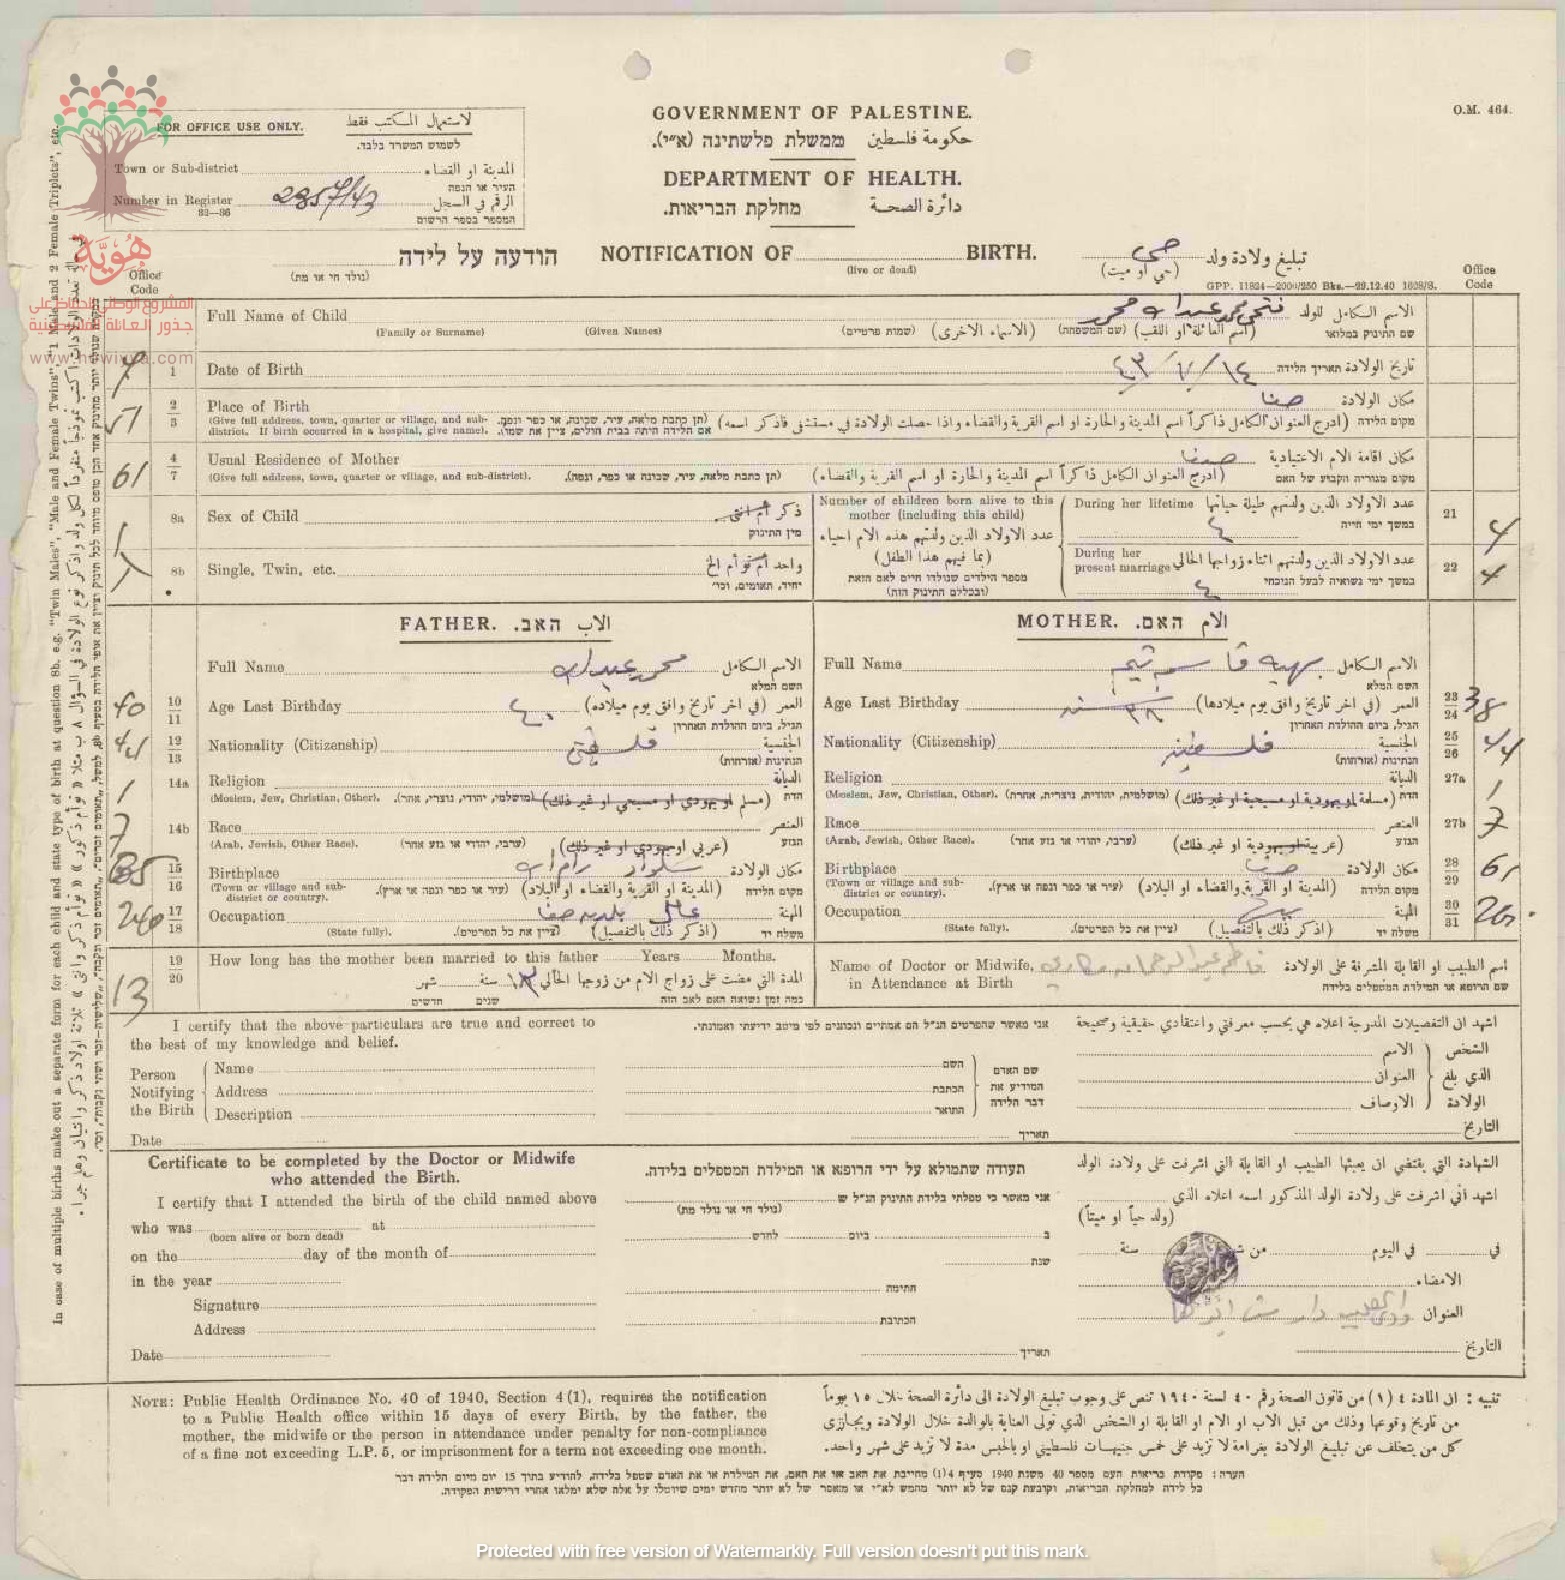 O.M. 464.
GOVERNMENT OF PALESTINE.
حكومة فلسطين ממשלת פלשתינה (א״י).
DEPARTMENT OF HEALTH.
دائرة الصحة מחלקת הבריאות.
FOR OFFICE USE ONLY. لاستعمال المكتب فقط
לשמוש המשרד בלבד.
Town or Sub-district المدينة او القضاء
העיר או הנפה
Number in Register 2857/43 الرقم في السجل
82—86 המספר בספר הרשום
هُويَّة
المشروع الوطني للحفاظ على
جذور العائلة الفلسطينية
www.howiyya.com
הודעה על לידה NOTIFICATION OF BIRTH. تبليغ ولادة ولد حي
(נולד חי או מת) (live or dead) (حي او ميت)
GPP. 11824—2000/250 Bks.—28.12.40 1608/S.
Office Code Office Code
Full Name of Child فتحي محمد عبدالله محمد الاسم الكامل للولد
(Family or Surname) (Given Names) (שמות פרטיים) (الاسماء الاخرى) (שם המשפחה) (اسم العائلة او اللقب) שם התינוק במלואו
7 1 Date of Birth ١٤/٧/٤٣ تاريخ الولادة תאריך הלידה
51 2 3 Place of Birth حيفا مكان الولادة
(Give full address, town, quarter or village, and sub-district. If birth occurred in a hospital, give name). (תן כתבת מלאה, עיר, שכונה, או כפר ונפה. אם הלידה היתה בבית חולים, ציין את שמו). (ادرج العنوان الكامل ذاكراً اسم المدينة والحارة او اسم القرية والقضاء واذا حصلت الولادة في مستشفى فاذكر اسمه) מקום הלידה
61 4 7 Usual Residence of Mother حيفا مكان اقامة الام الاعتيادية
(Give full address, town, quarter or village, and sub-district). (תן כתבת מלאה, עיר, שכונה או כפר, ונפה). (ادرج العنوان الكامل ذاكراً اسم المدينة والحارة او اسم القرية والقضاء) מקום מגוריה הקבוע של האם
1 8a Sex of Child ذكر ام انثى
מין התינוק
1 8b Single, Twin, etc. واحد ام توأم الخ
יחיד, תאומים, וכו׳
Number of children born alive to this mother (including this child)
عدد الاولاد الذين ولدتهم هذه الام احياء
(بما فيهم هذا الطفل)
מספר הילדים שנולדו חיים לאם הזאת
(ובכללם התינוק הזה)
During her lifetime عدد الاولاد الذين ولدتهم طيلة حياتها 21 4
٤ במשך ימי חייה
During her present marriage عدد الاولاد الذين ولدتهم اثناء زواجها الحالي 22 4
٤ במשך ימי נשואיה לבעל הנוכחי
FATHER. الاب האב.
Full Name محمد عبدالله الاسم الكامل
השם המלא
40 10 11 Age Last Birthday ٤٠ العمر (في اخر تاريخ وافق يوم ميلاده)
הגיל, ביום ההולדת האחרון
44 12 13 Nationality (Citizenship) فلسطيني الجنسية
הנתינות (אזרחות)
1 14a Religion الديانة
(Moslem, Jew, Christian, Other). (מושלמי, יהודי, נוצרי, אחר). (مسلم او يهودي او مسيحي او غير ذلك) הדת
7 14b Race العنصر
(Arab, Jewish, Other Race). (ערבי, יהודי או גזע אחר) (عربي او يهودي او غير ذلك) הגזע
35 15 16 Birthplace سلواد رام الله مكان الولادة
(Town or village and sub-district or country). (עיר או כפר ונפה או ארץ). (المدينة او القرية والقضاء او البلاد) מקום הלידה
240 17 18 Occupation عامل بلدية حيفا المهنة
(State fully). (ציין את כל הפרטים). (اذكر ذلك بالتفصيل) משלח יד
MOTHER. الام האם.
Full Name بهية قاسم الاسم الكامل
השם המלא
Age Last Birthday ٣٨ سنة العمر (في اخر تاريخ وافق يوم ميلادها) 23 24 38
הגיל, ביום ההולדת האחרון
Nationality (Citizenship) فلسطينية الجنسية 25 26 44
הנתינות (אזרחות)
Religion الديانة 27a 1
(Moslem, Jew, Christian, Other). (מושלמית, יהודית, נוצרית, אחרת) (مسلمة او يهودية او مسيحية او غير ذلك) הדת
Race العنصر 27b 7
(Arab, Jewish, Other Race). (ערבי, יהודי או גזע אחר) (عربية او يهودية او غير ذلك) הגזע
Birthplace حيفا مكان الولادة 28 29 61
(Town or village and sub-district or country). (עיר או כפר ונפה או ארץ). (المدينة او القرية والقضاء او البلاد) מקום הלידה
Occupation المهنة 30 31
(State fully). (ציין את כל הפרטים). (اذكر ذلك بالتفصيل) משלח יד
13 19 20 How long has the mother been married to this father Years Months.
المدة التي مضت على زواج الام من زوجها الحالي ١٣ سنة شهر
כמה זמן נשואה האם לאב הזה שנים חדשים
Name of Doctor or Midwife, in Attendance at Birth فاطمه عبد الرحمان اسم الطبيب او القابلة المشرفة على الولادة
שם הרופא או המילדת המטפלים בלידה
I certify that the above particulars are true and correct to the best of my knowledge and belief.
אני מאשר שהפרטים הנ״ל הם אמתיים ונכונים לפי מיטב ידיעתי ואמונתי.
اشهد ان التفصيلات المدرجة اعلاه هي بحسب معرفتي واعتقادي حقيقية وصحيحة
Person Notifying the Birth Name Address Description
השם הכתבת התואר שם האדם המודיע את דבר הלידה
الاسم العنوان الاوصاف الشخص الذي بلغ الولادة
Date תאריך التاريخ
Certificate to be completed by the Doctor or Midwife who attended the Birth.
תעודה שתמולא על ידי הרופא או המילדת המטפלים בלידה.
الشهادة التي يقتضي ان يعبئها الطبيب او القابلة التي اشرفت على ولادة الولد
I certify that I attended the birth of the child named above
אני מאשר כי טפלתי בלידת התינוק הנ״ל ש
(נולד חי או נולד מת)
اشهد أني اشرفت على ولادة الولد المذكور اسمه اعلاه الذي
(ولد حياً او ميتاً)
who was at
(born alive or born dead)
on the day of the month of
ב ביום לחדש
في في اليوم من شهر سنة
in the year שנת
Signature חתימה الامضاء
Address הכתובת العنوان
Date תאריך التاريخ
NOTE: Public Health Ordinance No. 40 of 1940, Section 4 (1), requires the notification
to a Public Health office within 15 days of every Birth, by the father, the
mother, the midwife or the person in attendance under penalty for non-compliance
of a fine not exceeding L.P. 5, or imprisonment for a term not exceeding one month.
تنبيه : ان المادة ٤ (١) من قانون الصحة رقم ٤٠ لسنة ١٩٤٠ تنص على وجوب تبليغ الولادة الى دائرة الصحة خلال ١٥ يوماً
من تاريخ وقوعها وذلك من قبل الاب او الام او القابلة او الشخص الذي تولى العناية بالوالدة خلال الولادة ويجازى
كل من يتخلف عن تبليغ الولادة بغرامة لا تزيد على خمس جنيهات فلسطيني او بالحبس مدة لا تزيد على شهر واحد.
הערה: פקודת בריאות העם מספר 40 משנת 1940 סעיף 4(1) מחייבת את האב או את האם, את המילדת או את האדם שטפל בלידה, להודיע בתוך 15 יום מיום הלידה דבר
כל לידה למחלקת הבריאות, וקובעת קנס של לא יותר מחמש לא״י או מאסר של לא יותר מחדש ימים שיוטלו על אלה שלא ימלאו אחרי דרישות הפקודה.
In case of multiple births make out a separate form for each child and state type of birth at question 8b, e.g. "Twin Males", "Male and Female Twins", "1 Male and 2 Female Triplets", etc.
Protected with free version of Watermarkly. Full version doesn't put this mark.